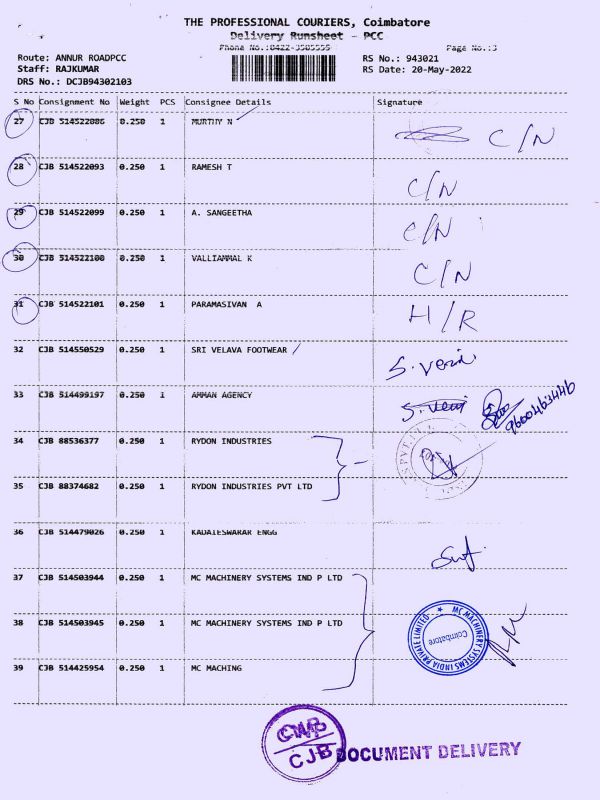 THE PROFESSIONAL COURIERS, Coimbatore
Delivery Runsheet - PCC
Phone No.:0422-3505555 Page No.:3
Route: ANNUR ROADPCC RS No.: 943021
Staff: RAJKUMAR RS Date: 20-May-2022
DRS No.: DCJB94302103
S No Consignment No Weight PCS Consignee Details Signature
27 CJB 514522086 0.250 1 MURTHY N C/N
28 CJB 514522093 0.250 1 RAMESH T C/N
29 CJB 514522099 0.250 1 A. SANGEETHA C/N
30 CJB 514522100 0.250 1 VALLIAMMAL K C/N
31 CJB 514522101 0.250 1 PARAMASIVAN A H/R
32 CJB 514550529 0.250 1 SRI VELAVA FOOTWEAR S. Veni
33 CJB 514499197 0.250 1 AMMAN AGENCY S. Veni 9600463446
34 CJB 88536377 0.250 1 RYDON INDUSTRIES
35 CJB 88374682 0.250 1 RYDON INDUSTRIES PVT LTD
36 CJB 514479026 0.250 1 KADAIESWARAR ENGG
37 CJB 514503944 0.250 1 MC MACHINERY SYSTEMS IND P LTD
38 CJB 514503945 0.250 1 MC MACHINERY SYSTEMS IND P LTD
MC MACHINERY SYSTEMS INDIA PRIVATE LIMITED
Coimbatore
39 CJB 514425954 0.250 1 MC MACHING
CWB
CJB DOCUMENT DELIVERY